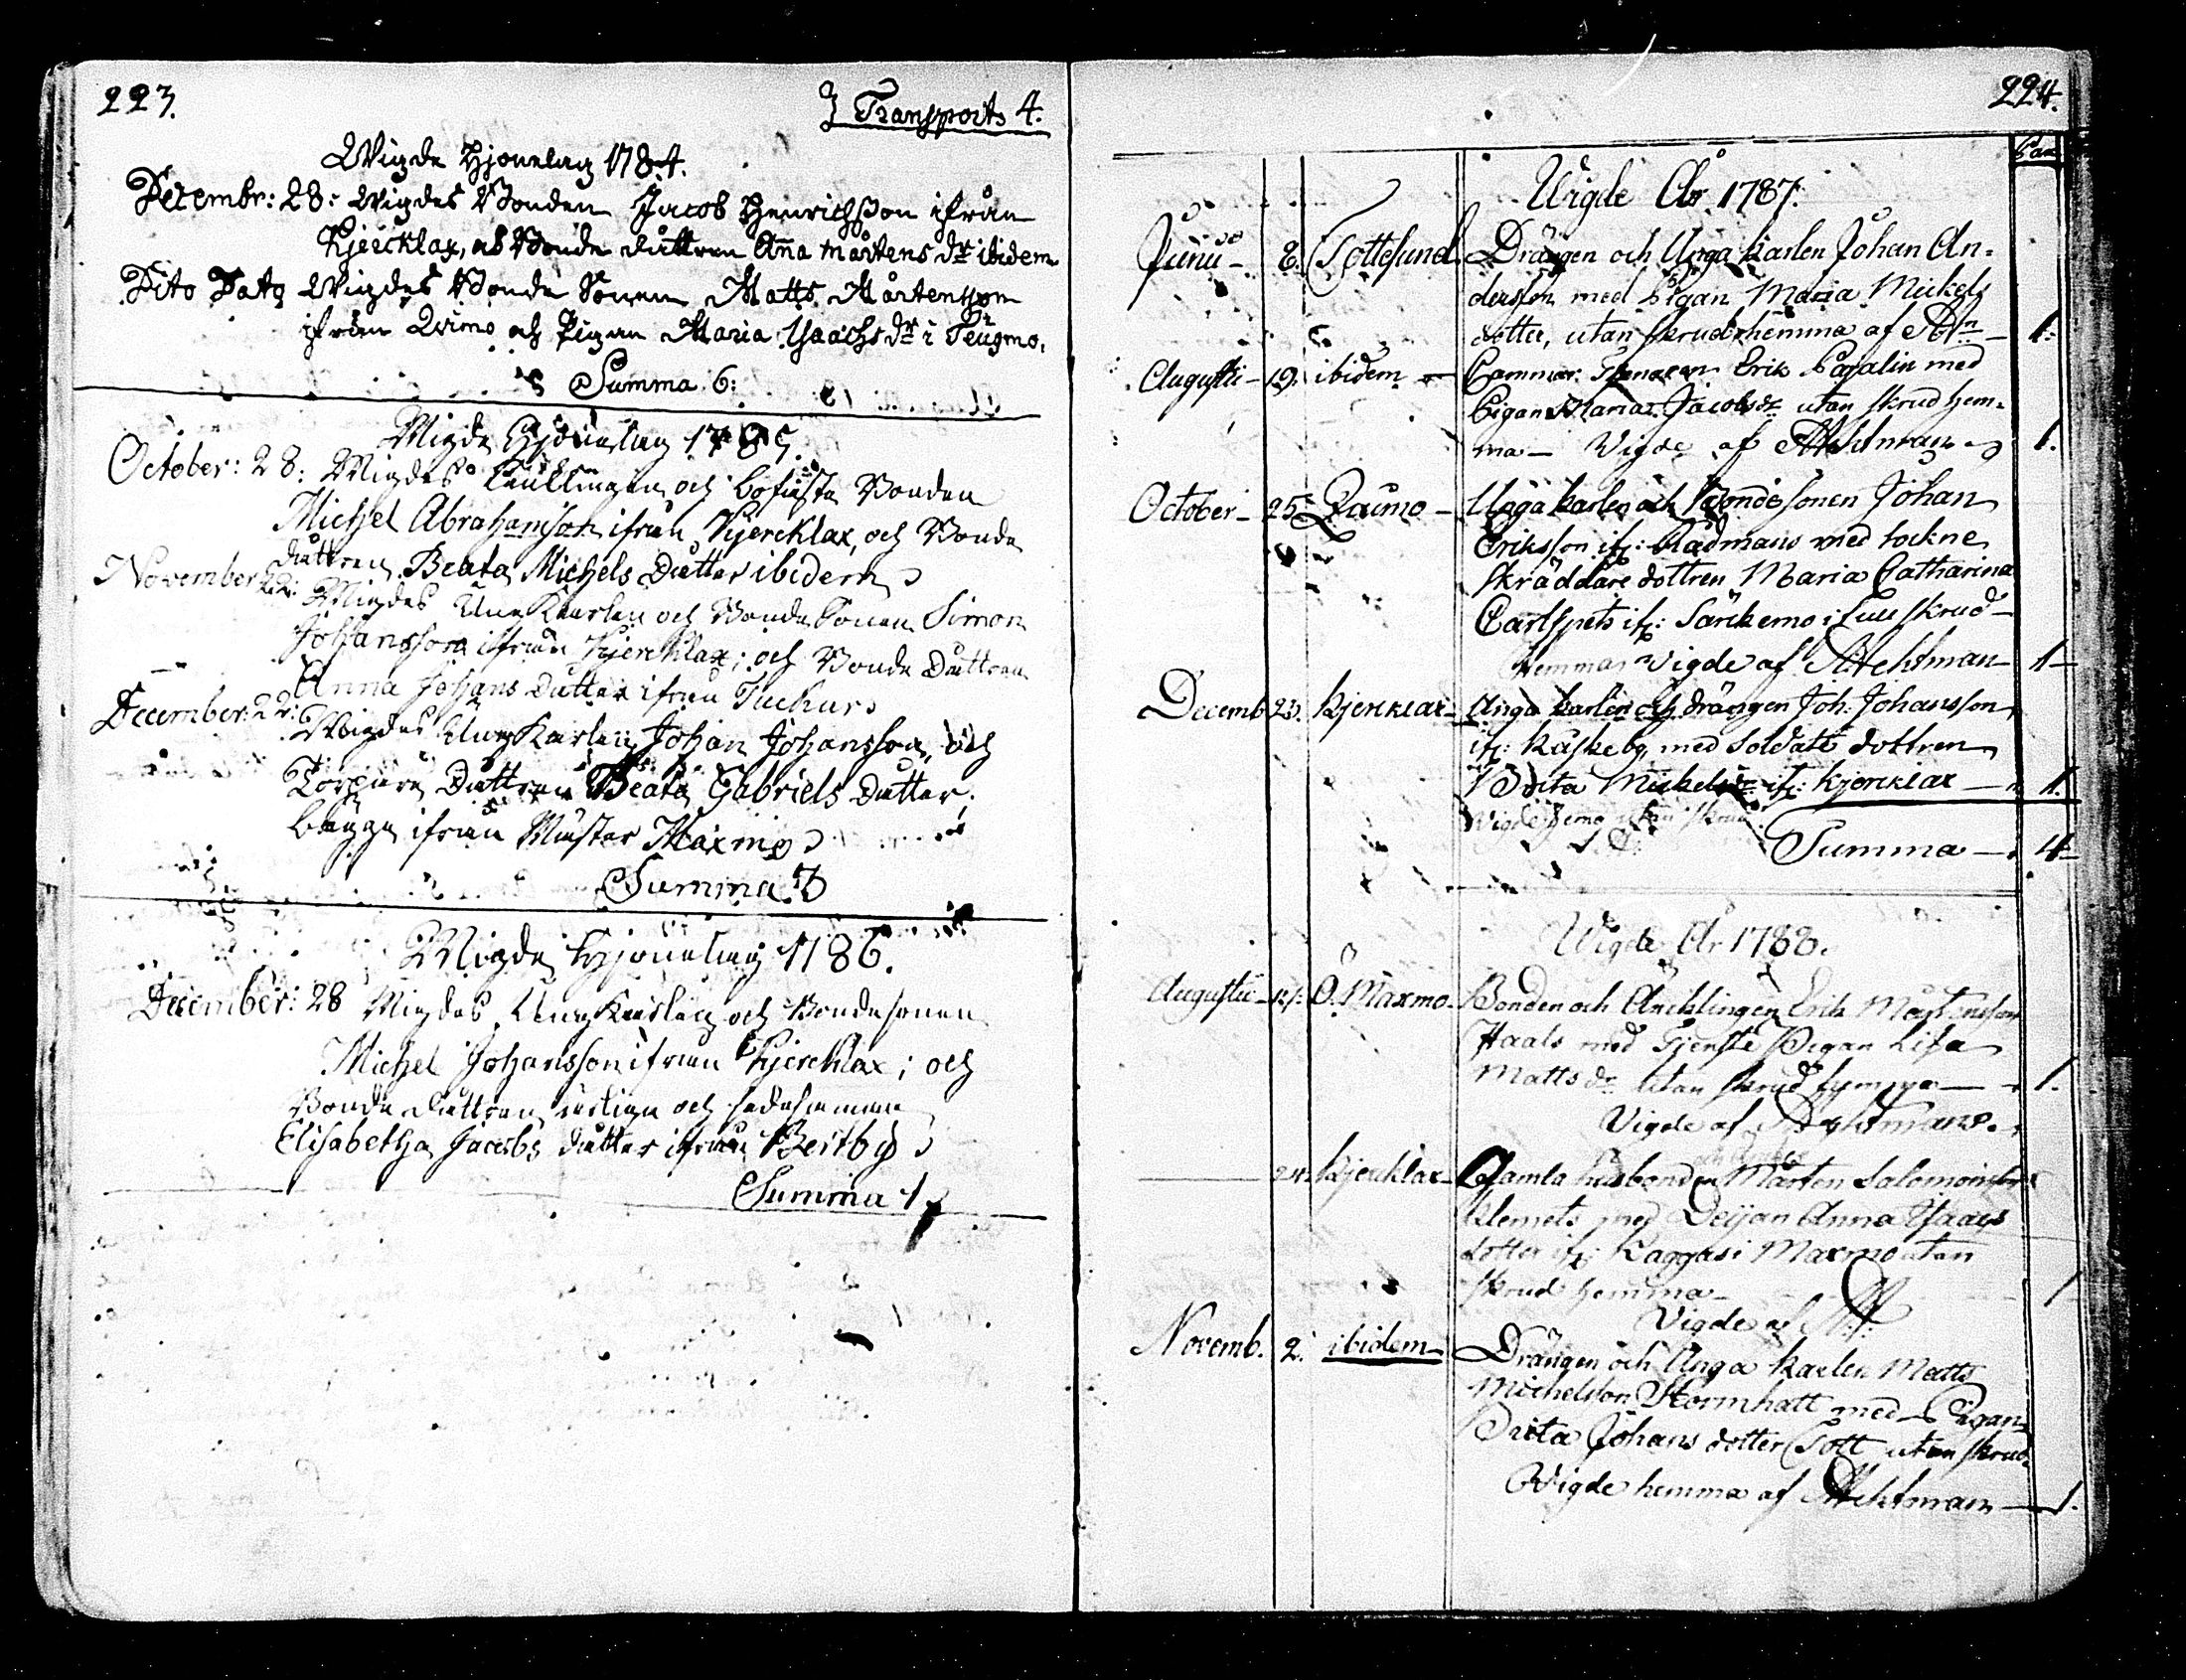 223.
Transport 4.
Wigde Hjonelag 1784.
Decembr: 28: Wigdes Bonden Jacob Henrichsson ifrån
Kjercklax, och Bonde duttren Anna Mårtens dr ibidem
Dito Dato Wigdes Bonde Sonen Matts Mårtensson
ifrån Qvimo och Pigan Maria Isaachs dr i Teugmo.
Summa 6:
Wigde Hjonelag 1785.
October: 28: Wigdes Enklingen och bofaste Bonden
Michel Abrahamsson ifrån Kjercklax, och Bonde
duttren Beata Michels Dutter ibidem
November 22: Wigdes Ung Karlen och Bonde Sonen Simon
Johansson ifrån Kjercklax; och Bonde Duttren
Anna Johans Dutter ifrån Tuckur
December: 22: Wigdes Ung Karlen Johan Johansson, och
Torpare Duttren Beata Gabriels Dutter;
begge ifrån Maxmo
Summa 3
Wigde Hjonelag 1786.
December: 28 Wigdes Ung Karlen och Bondesonen
Michel Johansson ifrån Kjercklax; och
Bonde duttren ärliga och
Elisabetha Jacobs dutter ifrån Bertby
Summa 1
224.
Par
Wigde År 1787.
Junii 8. Tottesund Drängen och Unga Karlen Johan An-
dersson med Pigan Maria Mickels
dotter, utan skrud hemma af
1.
Augusti 19. ibidem Erik med
Pigan Maria Jacobsdr utan skrud hem-
ma Vigde af
1.
October 25 Qvimo Unga karlen och Bondesonen Johan
Eriksson ifr: Rådmans med
Skräddare dottren Maria Catharina
Carlspets ifr: Särckemo i full skrud
Hemma Vigde af
1
Decemb 23. Kjercklax Unga karlen och drängen Joh: Johansson
ifr: Kåskeby, med Soldate dottren
Brita Mickelsdr ifr: Kjercklax
1.
Vigde hema utan skrud
Summa 4
Wigde År 1788.
Augusti 17. Ö. Maxmo Bonden och Äncklingen Erik Mårtensson
Haals med Tjenste Pigan Lisa
Matts dr utan skrud hemma
1.
Vigde af
24. Kjercklax Gamla husbonden Mårten Salomonsson
Klemets med Deijan Anna Isaacs
dotter ifr: Kaggas i Maxmo utan
skrud hemma
1
Vigde af
Novemb. 2. ibidem Drängen och Unga Karlen Matts
Michelsson Stormhatt med Pigan
Brita Johans dotter Tott utan skrud
Vigde hemma af
1.